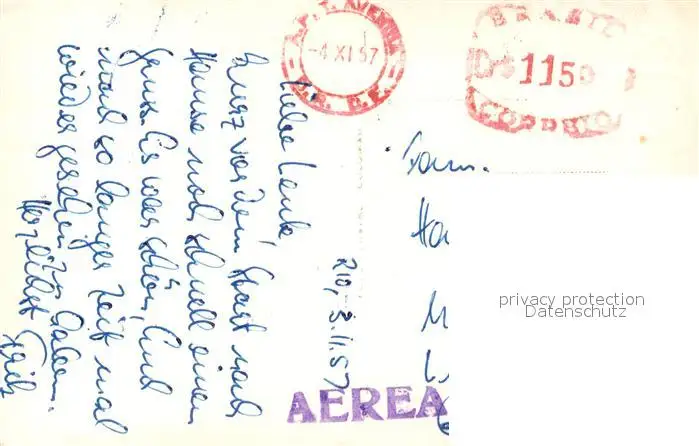 A.P.T. AVENIDA
-4 XI 57
D.F. E.F.
BRASIL
Cr$ 115
CORREIO
Rio, 3.11.57
Liebe Leute,
Kurz vor dem Start nach
Hause noch schnell einen
Gruss. Es war schön, Euch
nach so langer Zeit mal
wieder gesehen zu haben.
Herzlichst
Fritz
Fam.
Ha
AEREA
privacy protection
Datenschutz